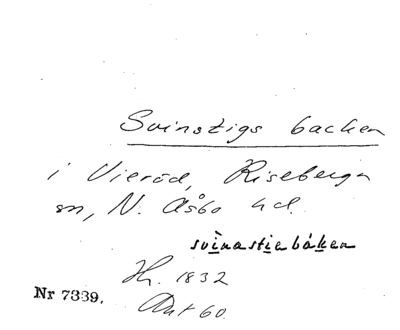 Svinstigs backen
i Vieröd, Riseberga
sn, N. Åsbo hd.
svinastiebáken
Hr. 1832
Ant 60.
Nr 7339.